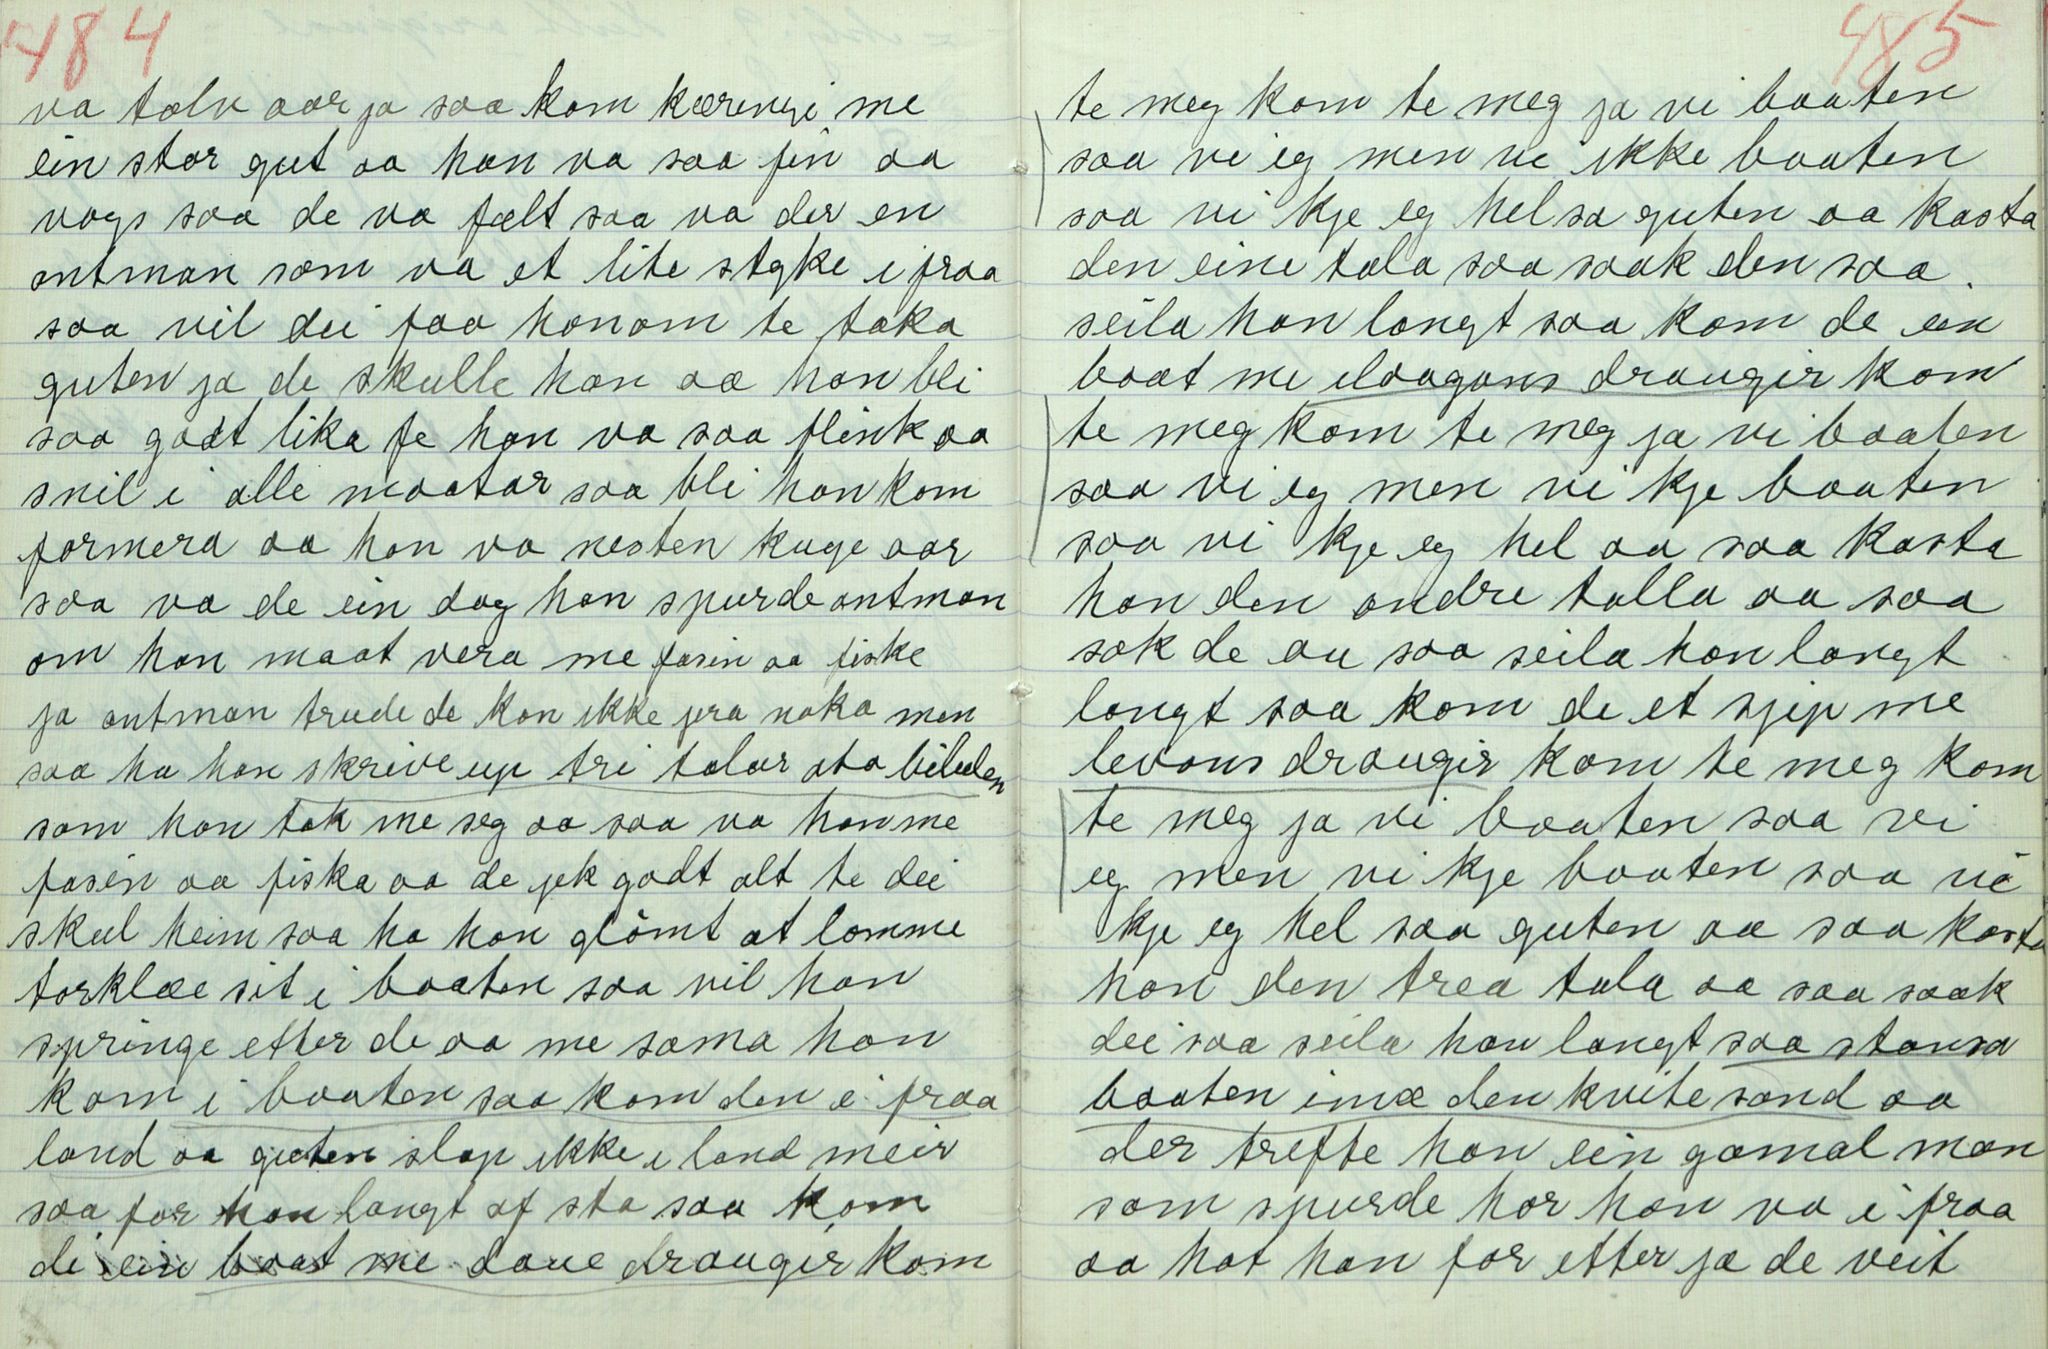 484
va tolv aar ja saa kom kærengi me
ein stor gut aa han va saa fin aa
vags saa de va fælt saa va der en
antman som va et lite styke i fraa
saa vil dei faa honom te taka
guten ja de skulle han aa han bli
saa godt lika fe han va saa flink aa
snil i alle maatar saa bli han kom
formera aa han va nesten kuge aar
saa va de ein dag han spurde antman
om han maat vera me fasin aa fiske
ja antman trude de kan ikke jera noka men
saa ha han skrive up tri talar ata bibelen
som han tok me seg aa saa va han me
fasin aa fiska aa de jek godt alt te dei
skul heim saa ha han glömt at lomme
torklæe sit i baaten saa vil han
springe etter de aa me sama han
kom i baaten saa kom den i fraa
land aa guten slap ikke i land meir
saa for han langt af sta saa kom
de ein baat me daue draugir kom
485
te meg kom te meg ja vi baaten
saa vi eg men vi ikke baaten
saa vi kje eg hel sa guten aa kasta
den eine tala saa saak den saa
seila han langt saa kom de ein
baat me eldagans draugir kom
te meg kom te meg ja vi baaten
saa vi eg men vi kje baaten
saa vi kje eg hel aa saa kasta
han den andre talla aa saa
sok de au saa seila han langt
langt saa kom de et sjip me
levans draugir kom te meg kom
te meg ja vi baaten saa vi
eg men vi kje baaten saa vi
kje eg hel saa guten aa saa kasta
han den trea tala aa saa saak
dei saa seila han langt saa stansa
baaten imæ den kvite sand aa
der trefte han ein gamal man
som spurde hor han va i fraa
aa hot han for etter ja de veit